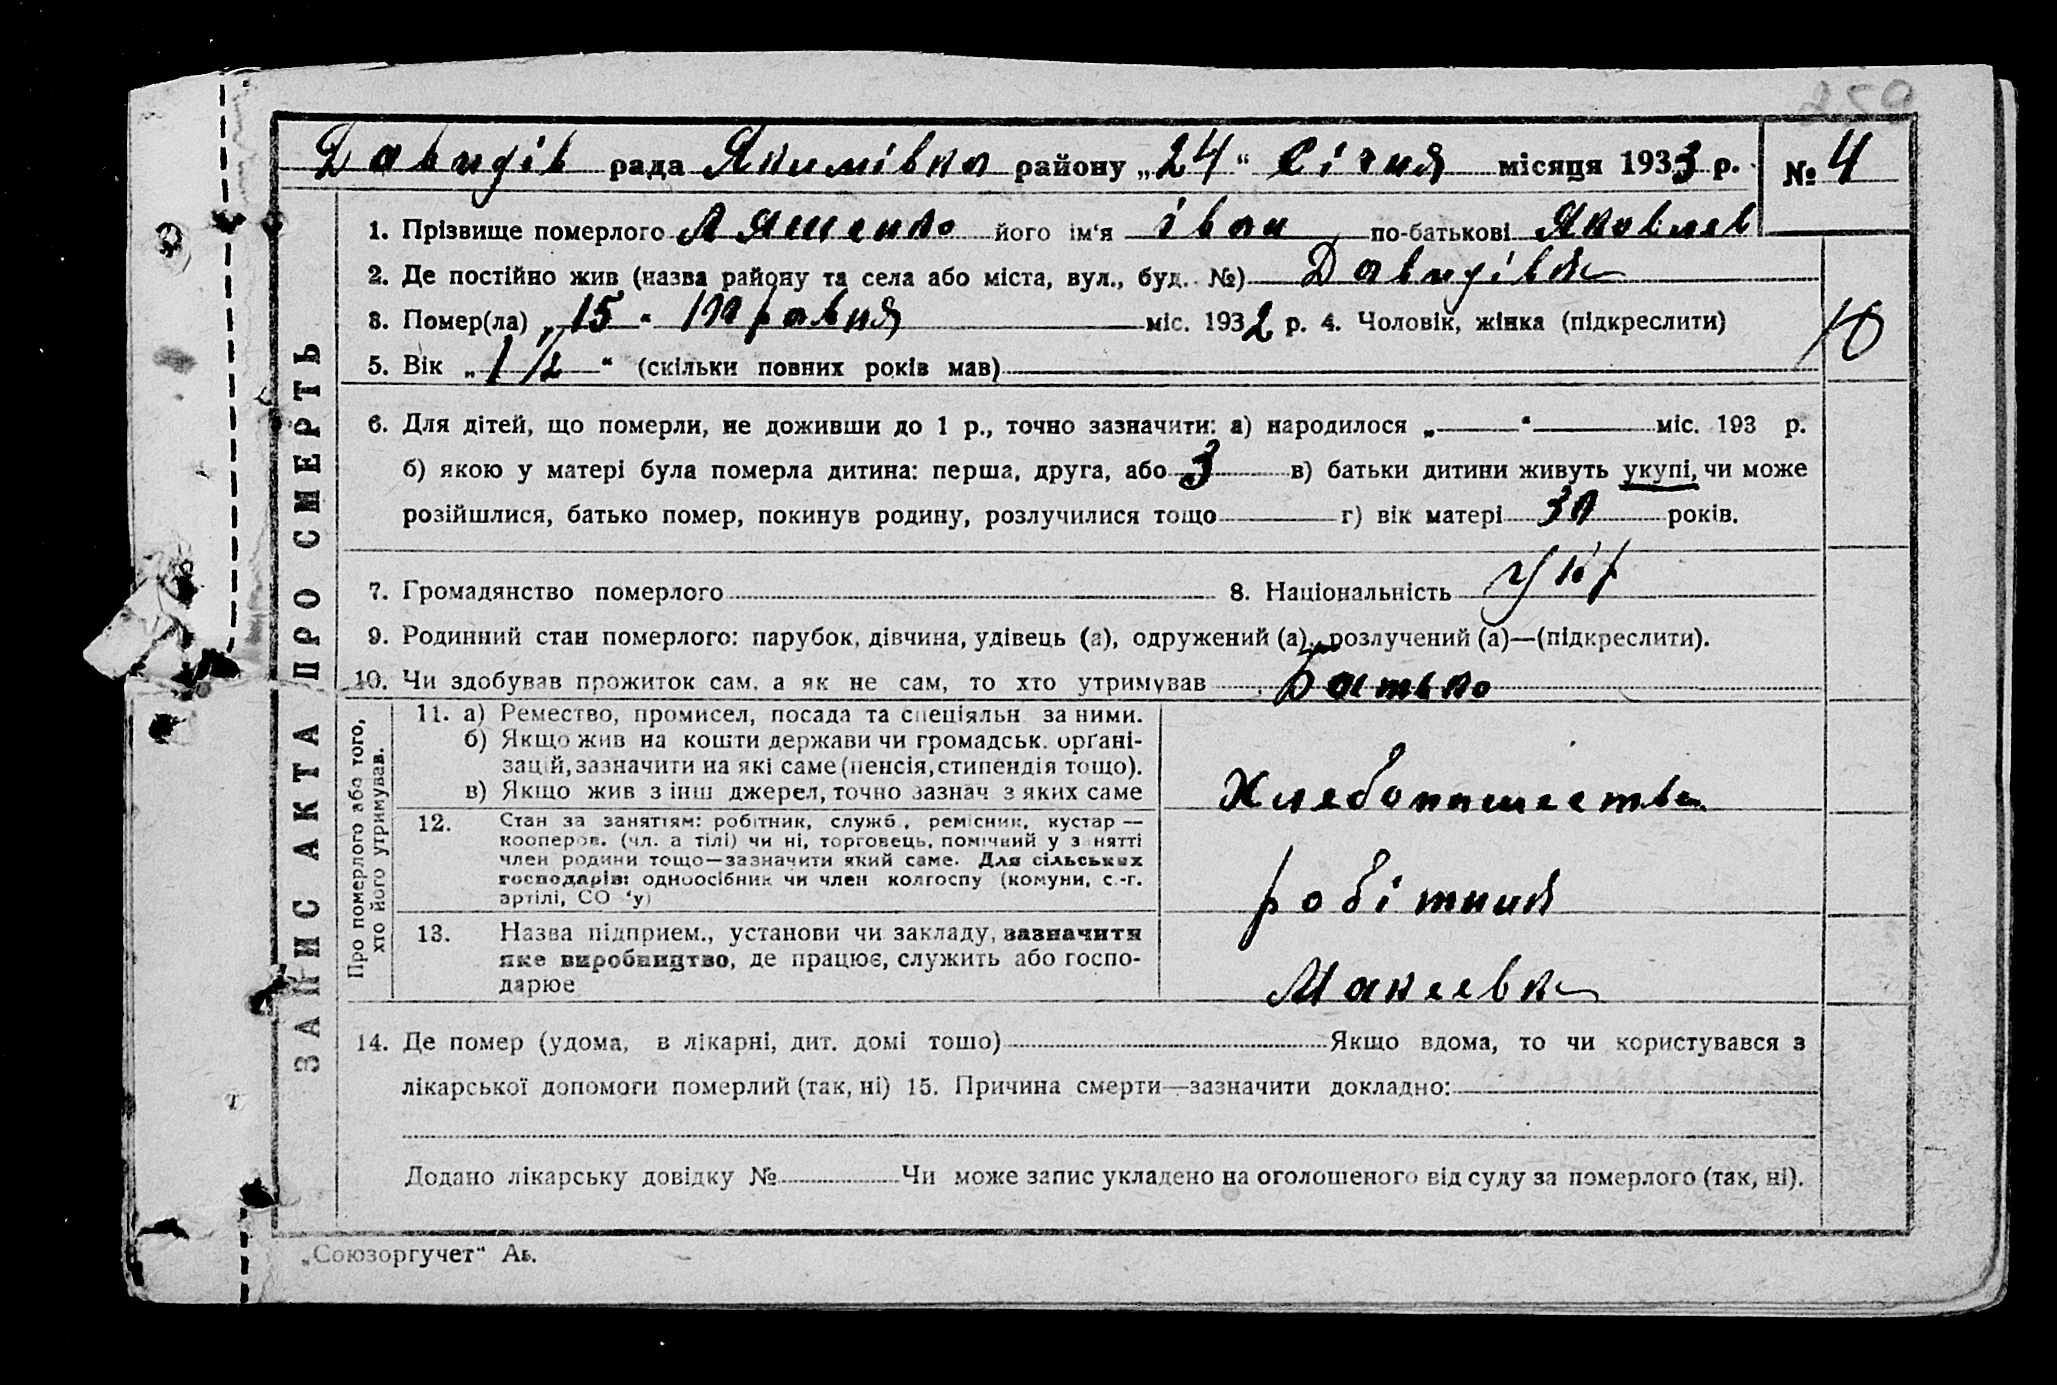 Давидів рада Якимівка району „24“ Січня місяця 1933 р. № 4
1. Прізвище померлого Ляшенко його ім'я Іван по-батькові Яковлев
2. Де постійно жив (назва району та села або міста, вул., буд. №) Давидівка
3. Помер(ла) „15“ травня міс. 1932 р. 4. Чоловік, жінка (підкреслити)
5. Вік „1 1/2“ (скільки повних років мав)
6. Для дітей, що померли, не доживши до 1 р., точно зазначити: а) народилося „ “ міс. 193 р.
б) якою у матері була померла дитина: перша, друга, або 3 в) батьки дитини живуть укупі, чи може
розійшлися, батько помер, покинув родину, розлучилися тощо г) вік матері 30 років.
7. Громадянство померлого 8. Національність укр
9. Родинний стан померлого: парубок, дівчина, удівець (а), одружений (а), розлучений (а)—(підкреслити).
10. Чи здобував прожиток сам, а як не сам, то хто утримував Батько
ЗАПИС АКТА ПРО СМЕРТЬ
Про померлого або того,
хто його утримував.
11. а) Ремество, промисел, посада та спеціяльн. за ними.
б) Якщо жив на кошти держави чи громадськ. органі-
зацій, зазначити на які саме (пенсія, стипендія тощо).
в) Якщо жив з інш джерел, точно зазнач з яких саме
Хлебопашество
12. Стан за заняттям: робітник, служб., ремісник, кустар —
кооперов. (чл. а тілі) чи ні, торговець, помічний у з нятті
член родини тощо—зазначити який саме. Для сільських
господарів: одноосібник чи член колгоспу (комуни, с.-г.
артілі, СО 'у)
робітник
13. Назва підприєм., установи чи закладу, зазначити
яке виробництво, де працює, служить або госпо-
дарює
Макеевка
14. Де помер (удома, в лікарні, дит. домі тощо) Якщо вдома, то чи користувався з
лікарської допомоги померлий (так, ні) 15. Причина смерти—зазначити докладно:
Додано лікарську довідку № Чи може запис укладено на оголошеного від суду за померлого (так, ні).
„Союзоргучет“ Ав.